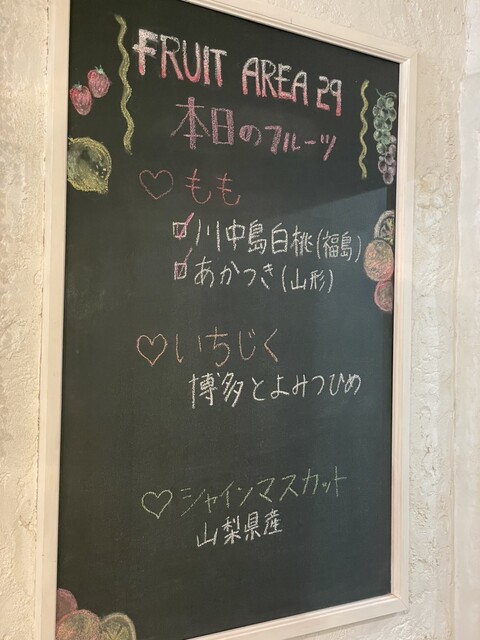 FRUIT AREA 29
本日のフルーツ
♡もも
☑川中島白桃(福島)
☑あかつき(山形)
♡いちじく
博多とよみつひめ
♡シャインマスカット
山梨県産